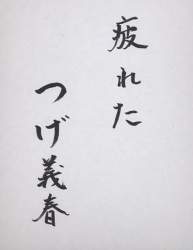 疲れた
つげ義春